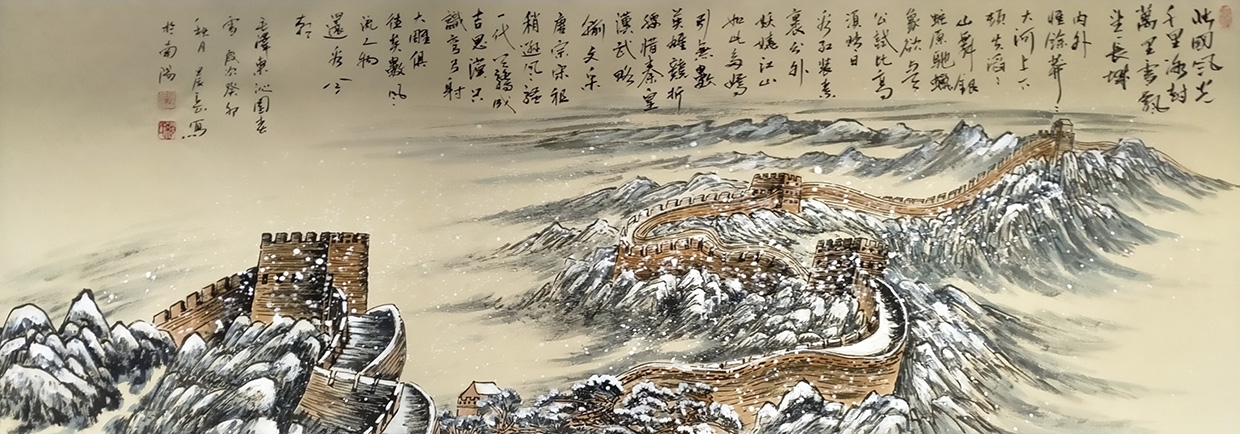 北國風光
千里冰封
萬里雪飄
望長城
内外
惟餘莽〻
大河上下
頓失滔〻
山舞銀
蛇原馳蠟
象欲與天
公試比高
須晴日
看紅裝素
裹分外
妖嬈江山
如此多嬌
引無數
英雄競折
腰惜秦皇
漢武略
輸文采
唐宗宋祖
稍遜風騷
一代天驕成
吉思漢只
識彎弓射
大雕俱
往矣數風
流人物
還看今
朝
毛澤東沁園春
雪歲次癸卯
秋月寫
於南陽